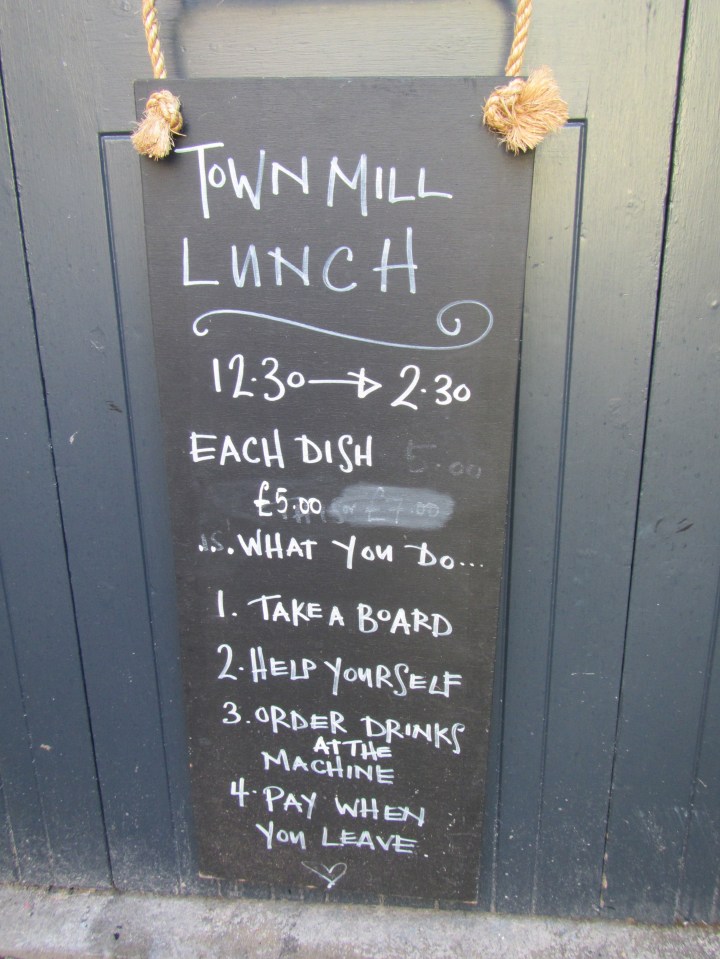 TOWN MILL
LUNCH
12.30 → 2.30
EACH DISH 5.00
£5.00 £7.00
...WHAT YOU DO...
1. TAKE A BOARD
2. HELP YOURSELF
3. ORDER DRINKS
AT THE
MACHINE
4. PAY WHEN
YOU LEAVE.